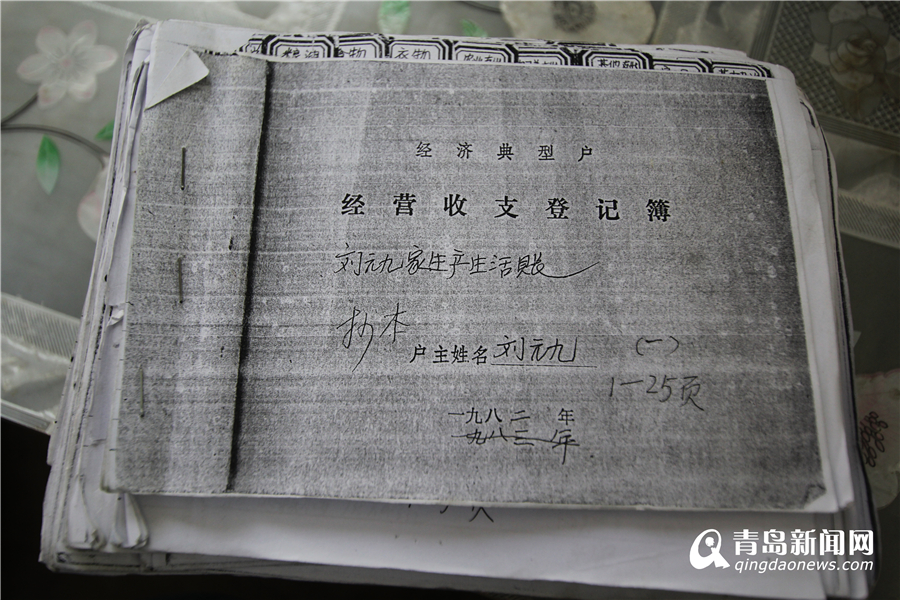 粮油
食物
衣物
经济典型户
经营收支登记簿
刘元九家生产生活账
抄本
户主姓名 刘元九 (一)
1—25页
一九八二 年
一九八三年
青岛新闻网
qingdaonews.com